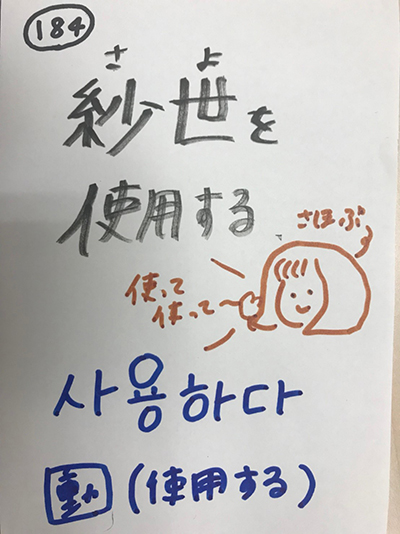 184
さ よ
紗世を
使用する
さほぷ
使って
使って～
사용하다
動 (使用する)